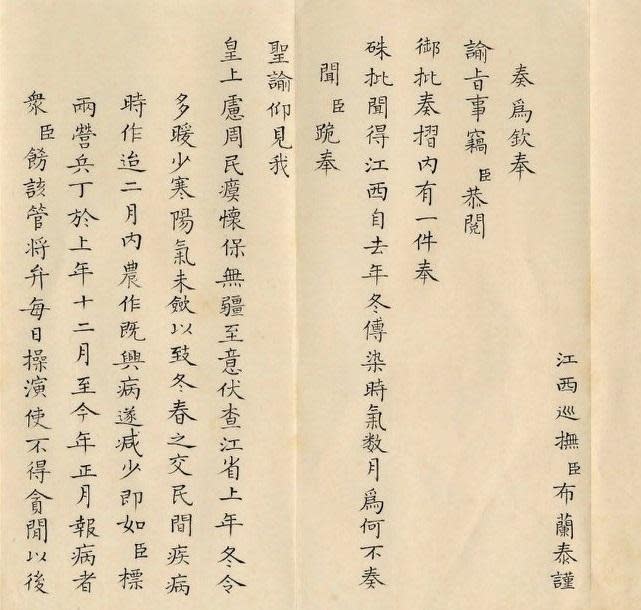 江西巡撫臣布蘭泰謹
奏爲欽奉
諭旨事竊臣恭閱
御批奏摺內有一件奉
硃批聞得江西自去年冬傳染時氣数月爲何不奏
聞臣跪奉
聖諭仰見我
皇上慮周民瘼懷保無疆至意伏查江省上年冬令
多暖少寒陽氣未歛以致冬春之交民間疾病
時作迨二月內農作既興病遂減少即如臣標
兩營兵丁於上年十二月至今年正月報病者
衆臣飭該管將弁每日操演使不得貪閒以後